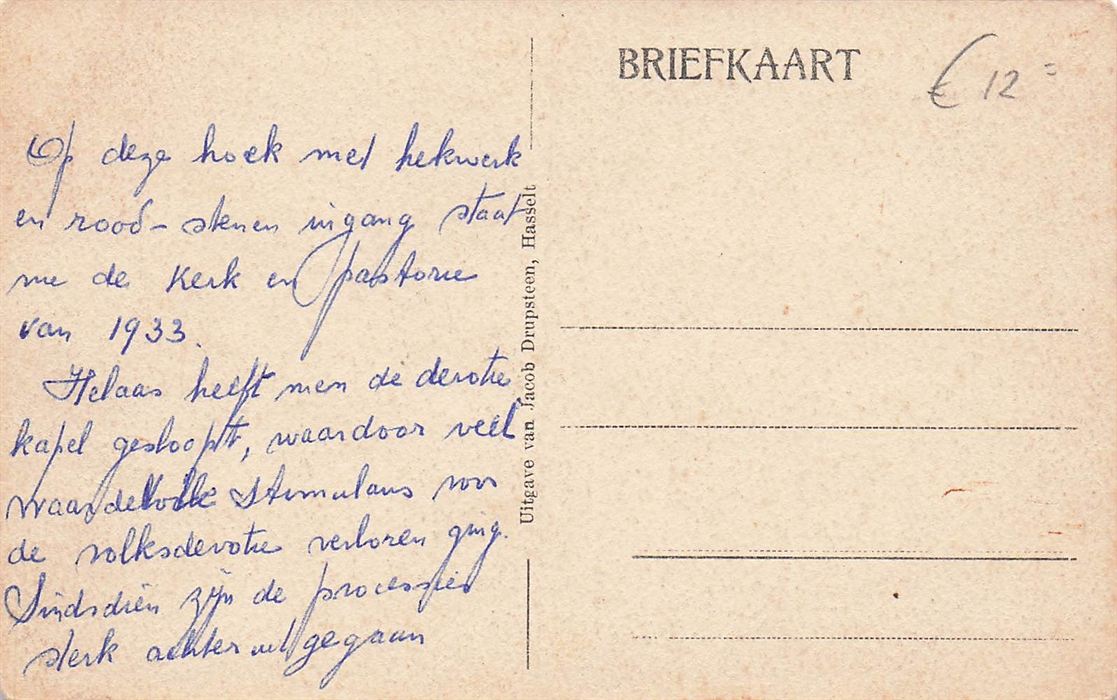 Op deze hoek met hekwerk
en rood-stenen ingang staat
nu de kerk en pastorie
van 1933.
Helaas heeft men de devotie
kapel gesloopt, waardoor veel
waardevolle stimulans voor
de volksdevotie verloren ging.
Sindsdien zijn de processies
sterk achteruitgegaan
Uitgave van Jacob Drupsteen, Hasselt
BRIEFKAART
€ 12=